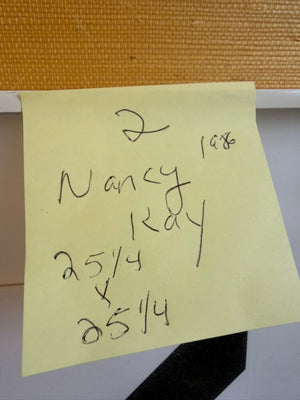 2
1986
Nancy
Kay
25 1/4
x
25 1/4